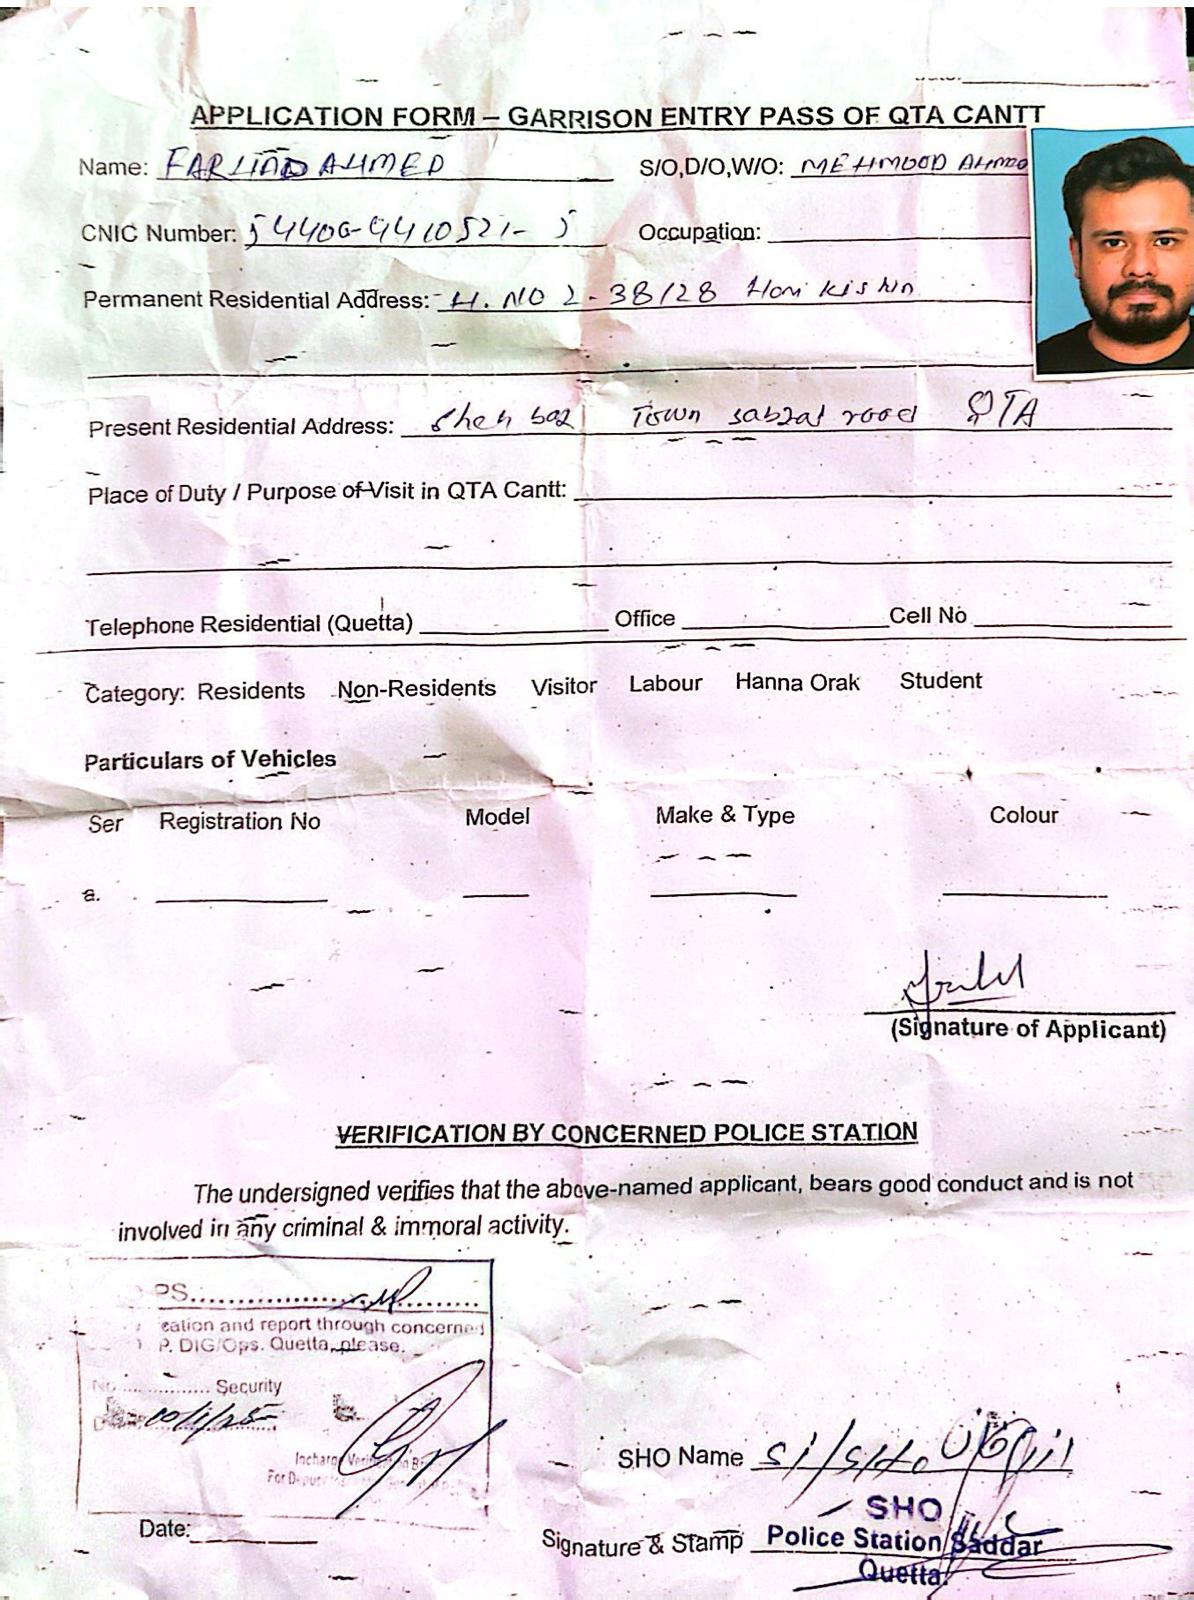 APPLICATION FORM – GARRISON ENTRY PASS OF QTA CANTT
Name: FARHAD AHMED S/O,D/O,W/O: MEHMOOD AHMED
CNIC Number: Occupation:
Permanent Residential Address: H. NO 2-38/28 Hari kishin
Present Residential Address: Sheh baz Town sabzal road QTA
Place of Duty / Purpose of Visit in QTA Cantt:
Telephone Residential (Quetta) Office Cell No
Category: Residents Non-Residents Visitor Labour Hanna Orak Student
Particulars of Vehicles
Ser Registration No Model Make & Type Colour
a.
(Signature of Applicant)
VERIFICATION BY CONCERNED POLICE STATION
The undersigned verifies that the above-named applicant, bears good conduct and is not
involved in any criminal & immoral activity.
PS
cation and report through concerned
P. DIG/Ops. Quetta, please.
No. Security
Incharge
For
SHO Name
SHO
Date: Signature & Stamp Police Station Saddar
Quetta